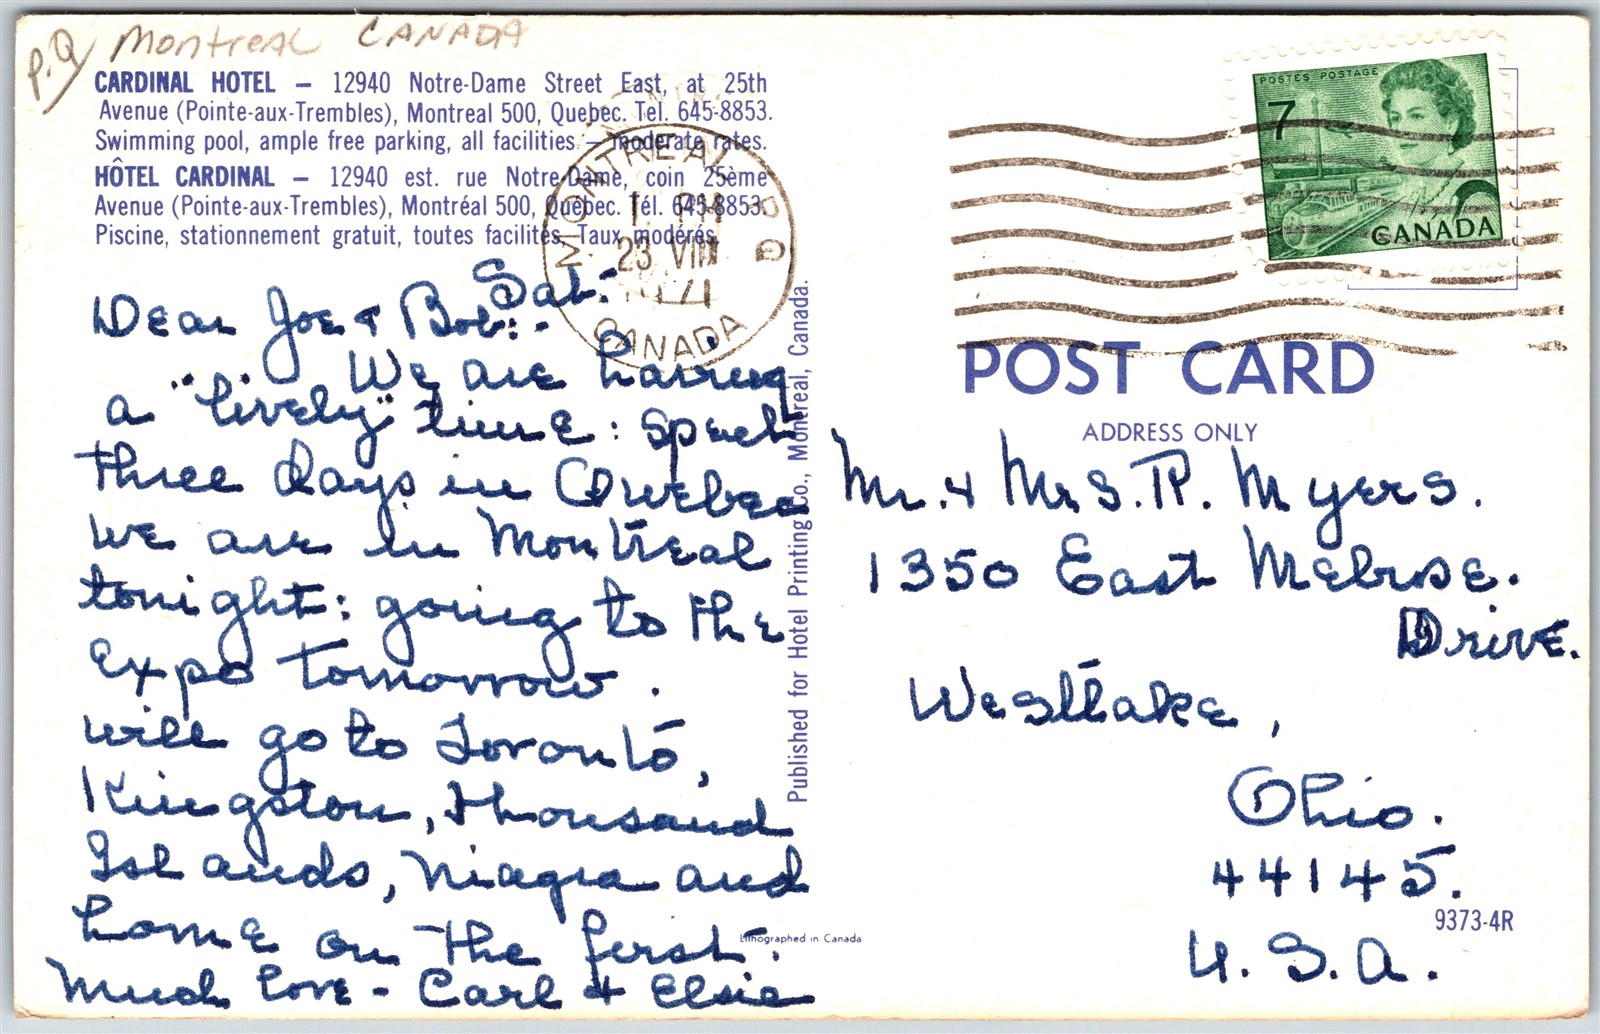 P.Q Montreal CANADA
CARDINAL HOTEL — 12940 Notre-Dame Street East, at 25th
Avenue (Pointe-aux-Trembles), Montreal 500, Quebec. Tel. 645-8853.
Swimming pool, ample free parking, all facilities — moderate rates.
HÔTEL CARDINAL — 12940 est. rue Notre-Dame, coin 25ème
Avenue (Pointe-aux-Trembles), Montréal 500, Québec. Tél. 645-8853.
Piscine, stationnement gratuit, toutes facilités. Taux modérés.
MONTREAL P Q
PM
23 VIII
1971
CANADA
Sat.
Dear Joe & Bob:-
We are having
a "lively" time: spent
three days in Quebec
we are in Montreal
tonight: going to the
Expo tomorrow.
will go to Toronto,
Kingston, Thousand
Islands, Niagra and
home on the first.
Much love - Carl & Elsie
Published for Hotel Printing Co., Montreal, Canada.
Lithographed in Canada
POSTES POSTAGE
7
CANADA
POST CARD
ADDRESS ONLY
Mr. & Mrs. R. Myers.
1350 East Melrose.
Drive.
Westlake,
Ohio.
44145.
9373-4R
U.S.A.